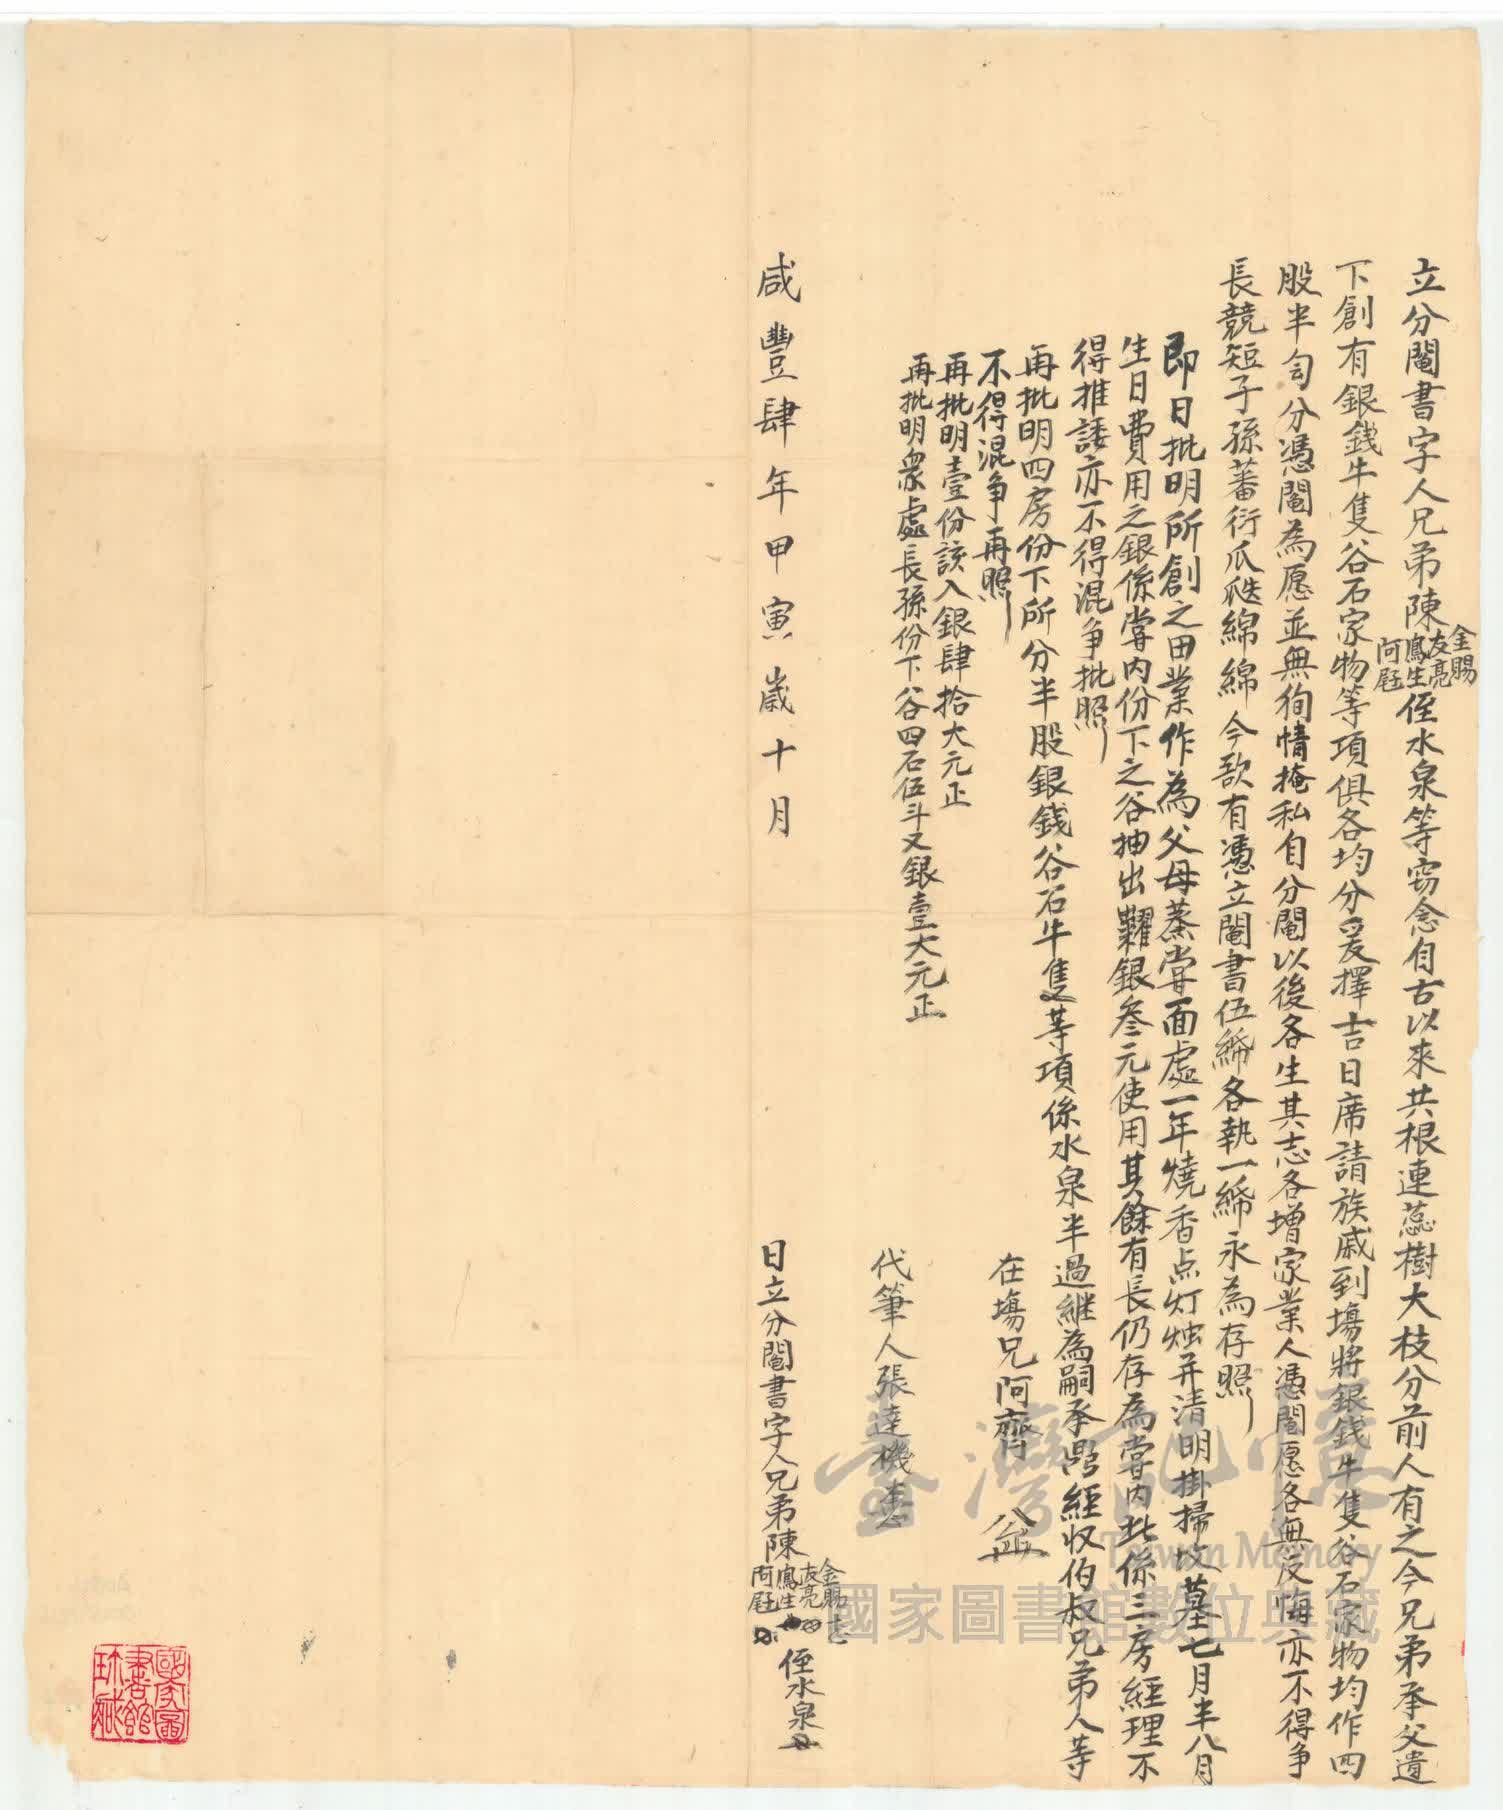 立分鬮書字人兄弟陳金賜友亮鳳生阿屘侄水泉等窃念自古以來共根連蕊樹大枝分前人有之今兄弟承父遺
下創有銀錢牛隻谷石家物等項俱各均分爰擇吉日席請族戚到塲將銀錢牛隻谷石家物均作四
股半勻分憑鬮為愿並無狥情掩私自分鬮以後各生其志各增家業人憑鬮愿各無反悔亦不得争
長競短子孫蕃衍瓜瓞綿綿今欲有憑立鬮書伍紙各執一紙永為存照
即日批明所創之田業作為父母蒸嘗面處一年燒香点灯烛并清明掛掃坟墓七月半八月
生日費用之銀係嘗內份下之谷抽出糶銀叁元使用其餘有長仍存為嘗內此係三房經理不
得推諉亦不得混争批照
再批明四房份下所分半股銀錢谷石牛隻等項係水泉半過継為嗣承 經収伯叔兄弟人等
不得混争再照
再批明壹份該入銀肆拾大元正
再批明衆處長孫份下谷四石伍斗又銀壹大元正
在塲兄阿齊
代筆人張達機
咸豐肆年甲寅歲十月
日立分鬮書字人兄弟陳金賜友亮鳳生阿屘侄水泉
國家圖書館珍藏
臺灣記憶
Taiwan Memory
國家圖書館數位典藏